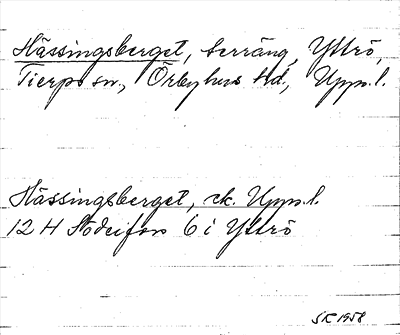 Hässingsberget, terräng, Yttrö,
Tierps sn., Örbyhus hd., Upps.l.
Hässingsberget, ek. Upps.l.
12 H 6 i Yttrö
SK 1958